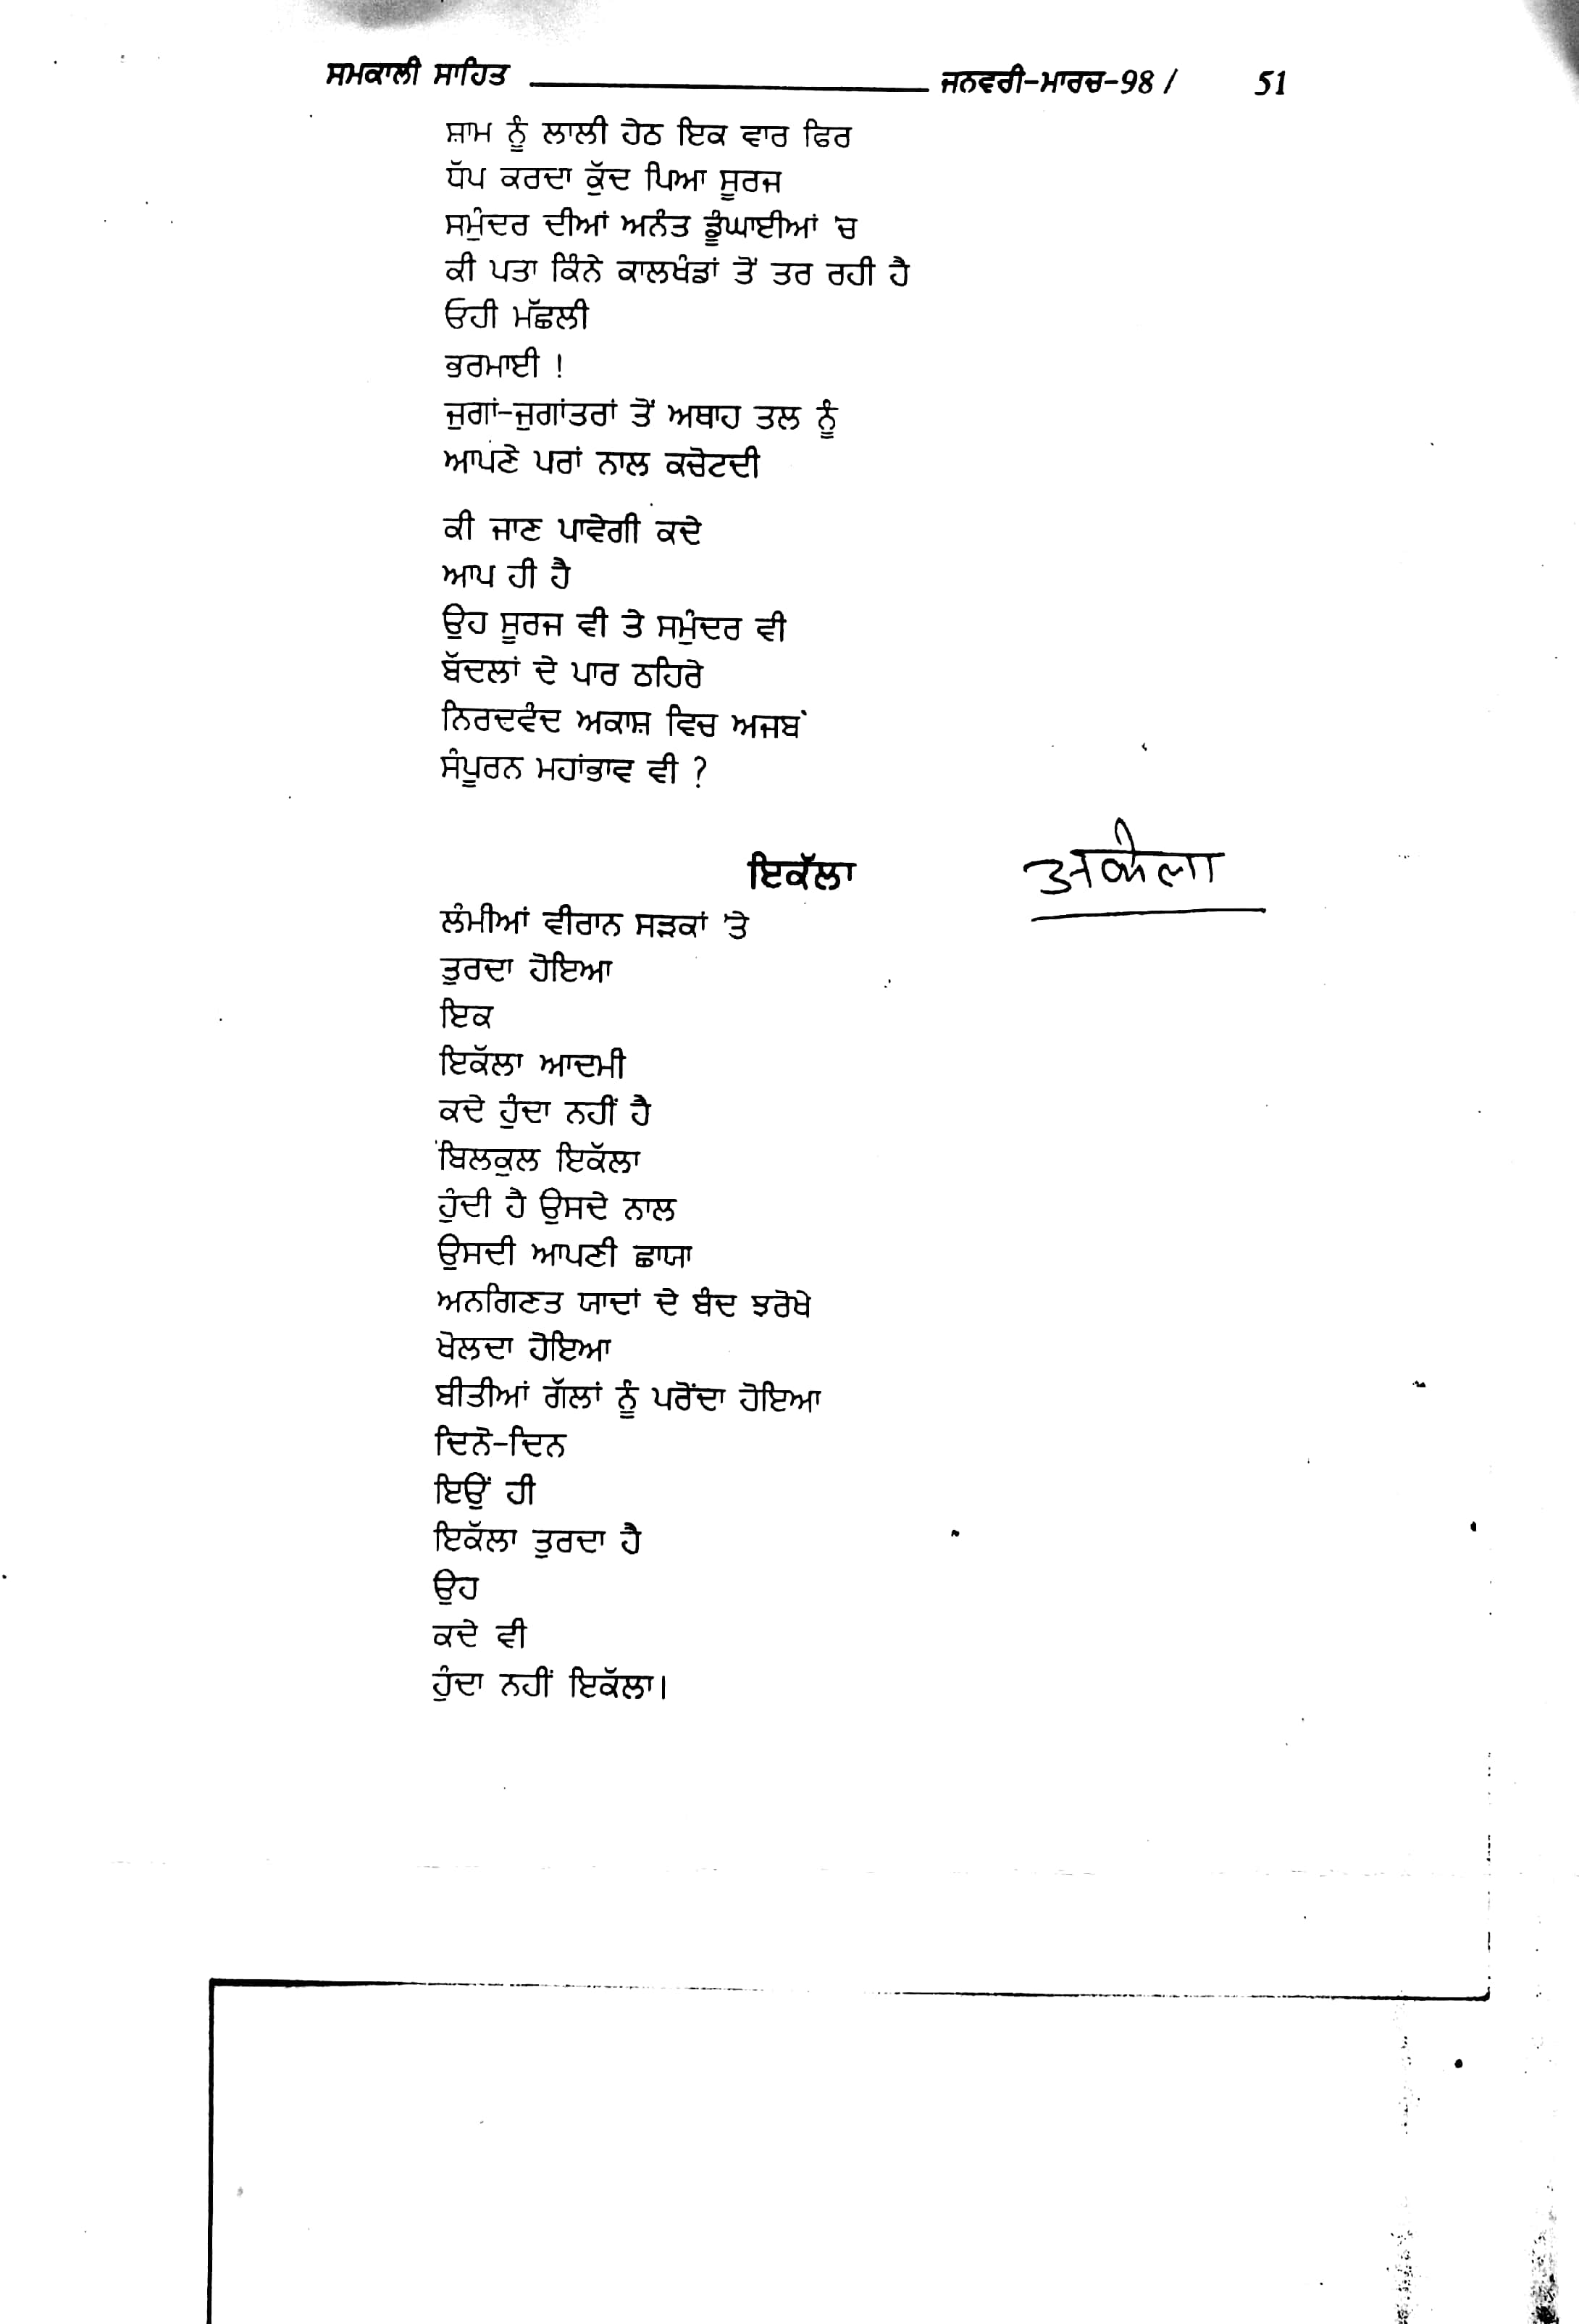 ਸਮਕਾਲੀ ਸਾਹਿਤ ਜਨਵਰੀ-ਮਾਰਚ-98 / 51
ਸ਼ਾਮ ਨੂੰ ਲਾਲੀ ਹੇਠ ਇਕ ਵਾਰ ਫਿਰ
ਧੱਪ ਕਰਦਾ ਕੁੱਦ ਪਿਆ ਸੂਰਜ
ਸਮੁੰਦਰ ਦੀਆਂ ਅਨੰਤ ਡੂੰਘਾਈਆਂ 'ਚ
ਕੀ ਪਤਾ ਕਿੰਨੇ ਕਾਲਖੰਡਾਂ ਤੋਂ ਤਰ ਰਹੀ ਹੈ
ਓਹੀ ਮੱਛਲੀ
ਭਰਮਾਈ !
ਜੁਗਾਂ-ਜੁਗਾਂਤਰਾਂ ਤੋਂ ਅਥਾਹ ਤਲ ਨੂੰ
ਆਪਣੇ ਪਰਾਂ ਨਾਲ ਕਚੋਟਦੀ
ਕੀ ਜਾਣ ਪਾਵੇਗੀ ਕਦੇ
ਆਪ ਹੀ ਹੈ
ਉਹ ਸੂਰਜ ਵੀ ਤੇ ਸਮੁੰਦਰ ਵੀ
ਬੱਦਲਾਂ ਦੇ ਪਾਰ ਠਹਿਰੇ
ਨਿਰਦਵੰਦ ਅਕਾਸ਼ ਵਿਚ ਅਜਬ
ਸੰਪੂਰਨ ਮਹਾਂਭਾਵ ਵੀ ?
ਇਕੱਲਾ अकेला
ਲੰਮੀਆਂ ਵੀਰਾਨ ਸੜਕਾਂ 'ਤੇ
ਤੁਰਦਾ ਹੋਇਆ
ਇਕ
ਇਕੱਲਾ ਆਦਮੀ
ਕਦੇ ਹੁੰਦਾ ਨਹੀਂ ਹੈ
ਬਿਲਕੁਲ ਇਕੱਲਾ
ਹੁੰਦੀ ਹੈ ਉਸਦੇ ਨਾਲ
ਉਸਦੀ ਆਪਣੀ ਛਾਯਾ
ਅਨਗਿਣਤ ਯਾਦਾਂ ਦੇ ਬੰਦ ਝਰੋਖੇ
ਖੋਲਦਾ ਹੋਇਆ
ਬੀਤੀਆਂ ਗੱਲਾਂ ਨੂੰ ਪਰੋਂਦਾ ਹੋਇਆ
ਦਿਨੋ-ਦਿਨ
ਇਉਂ ਹੀ
ਇਕੱਲਾ ਤੁਰਦਾ ਹੈ
ਉਹ
ਕਦੇ ਵੀ
ਹੁੰਦਾ ਨਹੀਂ ਇਕੱਲਾ।